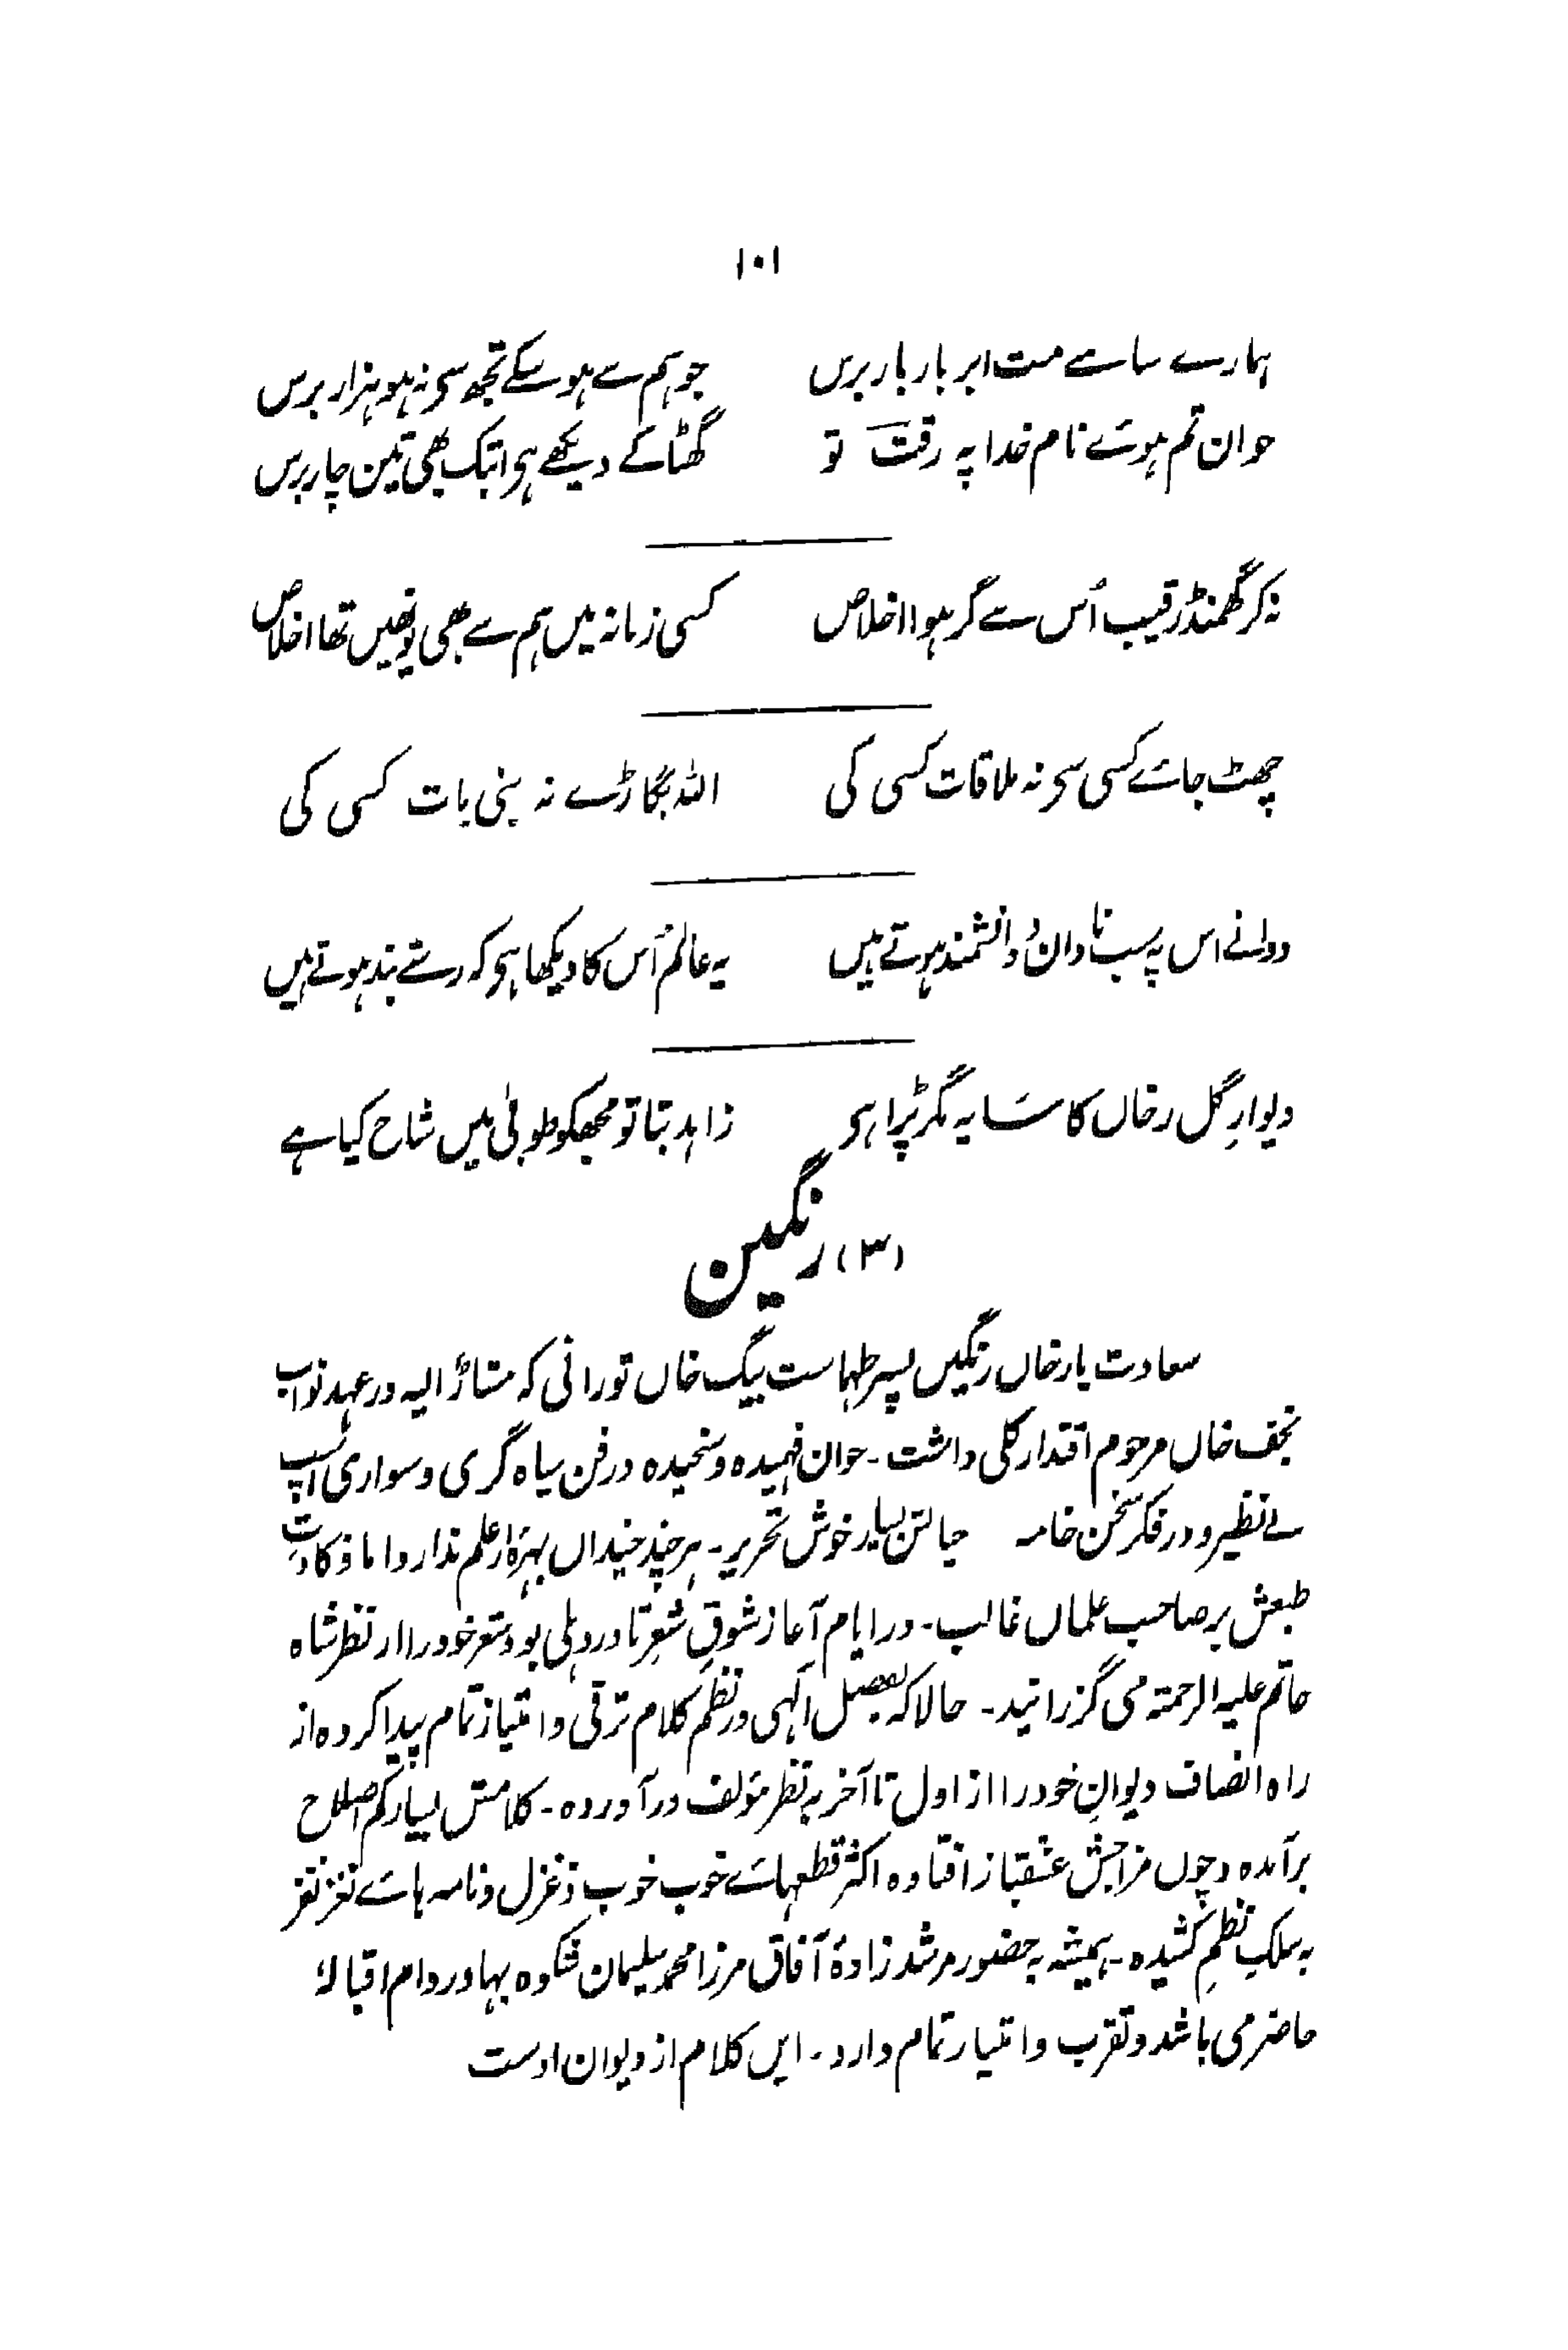 ۱۰۱
ہمارے سامے مت ابر بار بار برس جو ہم سے ہو سکے تجھ سے نہ ہو ہزار برس
جوان تم ہوئے نام خدا پہ رقتؔ تو گھٹا کے دیکھے ہے ابتک بھی تین چار برس
نہ کر گھمنڈ رقیب اُس سے گر ہوا اخلاص کسی زمانہ میں ہم سے بھی یونھیں تھا اخلاص
چھٹ جائے کسی سے نہ ملاقات کسی کی اللہ بگاڑے نہ بنی بات کسی کی
دوانے اس پہ سب نادان و دانشمند ہوتے ہیں یہ عالم اُس کا دیکھا ہے کہ رستے بند ہوتے ہیں
دیوارِ گل رخاں کا سایہ مگر پڑا ہے زاہد بتا تو مجھکو طوبیٰ میں شاخ کیا ہے
(۳) رنگین
سعادت یار خاں رنگیں پسر طہماست بیگ خاں تورانی کہ مشارٌ الیہ در عہد نواب
نجف خاں مرحوم اقتدار کلی داشت ۔ جوان فہمیدہ و سنجیدہ در فن سپاہ گری و سواری اسپ
بے نظیر و در فکر سخن خامہ خیالش بسیار خوش تحریر ۔ ہر چند چنداں بہرۂ از علم ندارد اما ذکاوتِ
طبعش بر صاحب علماں غالب ۔ در ایام آغاز شوقِ شعر تا در دہلی بود شعر خود را از نظر شاہ
حاتم علیہ الرحمۃ می گزرانید ۔ حالا کہ بفضل الٰہی در نظم کلام ترقی و امتیاز تمام پیدا کردہ از
راہ انصاف دیوانِ خود را از اول تا آخر بہ نظر مؤلف در آوردہ ۔ کلامش بسیار کم اصلاح
برآمدہ و چوں مزاجش عشقباز افتادہ اکثر قطعہائے خوب خوب و غزل و نامہ ہائے نغز نغز
بہ سلکِ نظم کشیدہ ۔ ہمیشہ بہ حضور مرشد زادۂ آفاق مرزا محمد سلیمان شکوہ بہادر دام اقبالہٗ
حاضر می باشد و تقرب و امتیاز تمام دارد ۔ ایں کلام از دیوان اوست